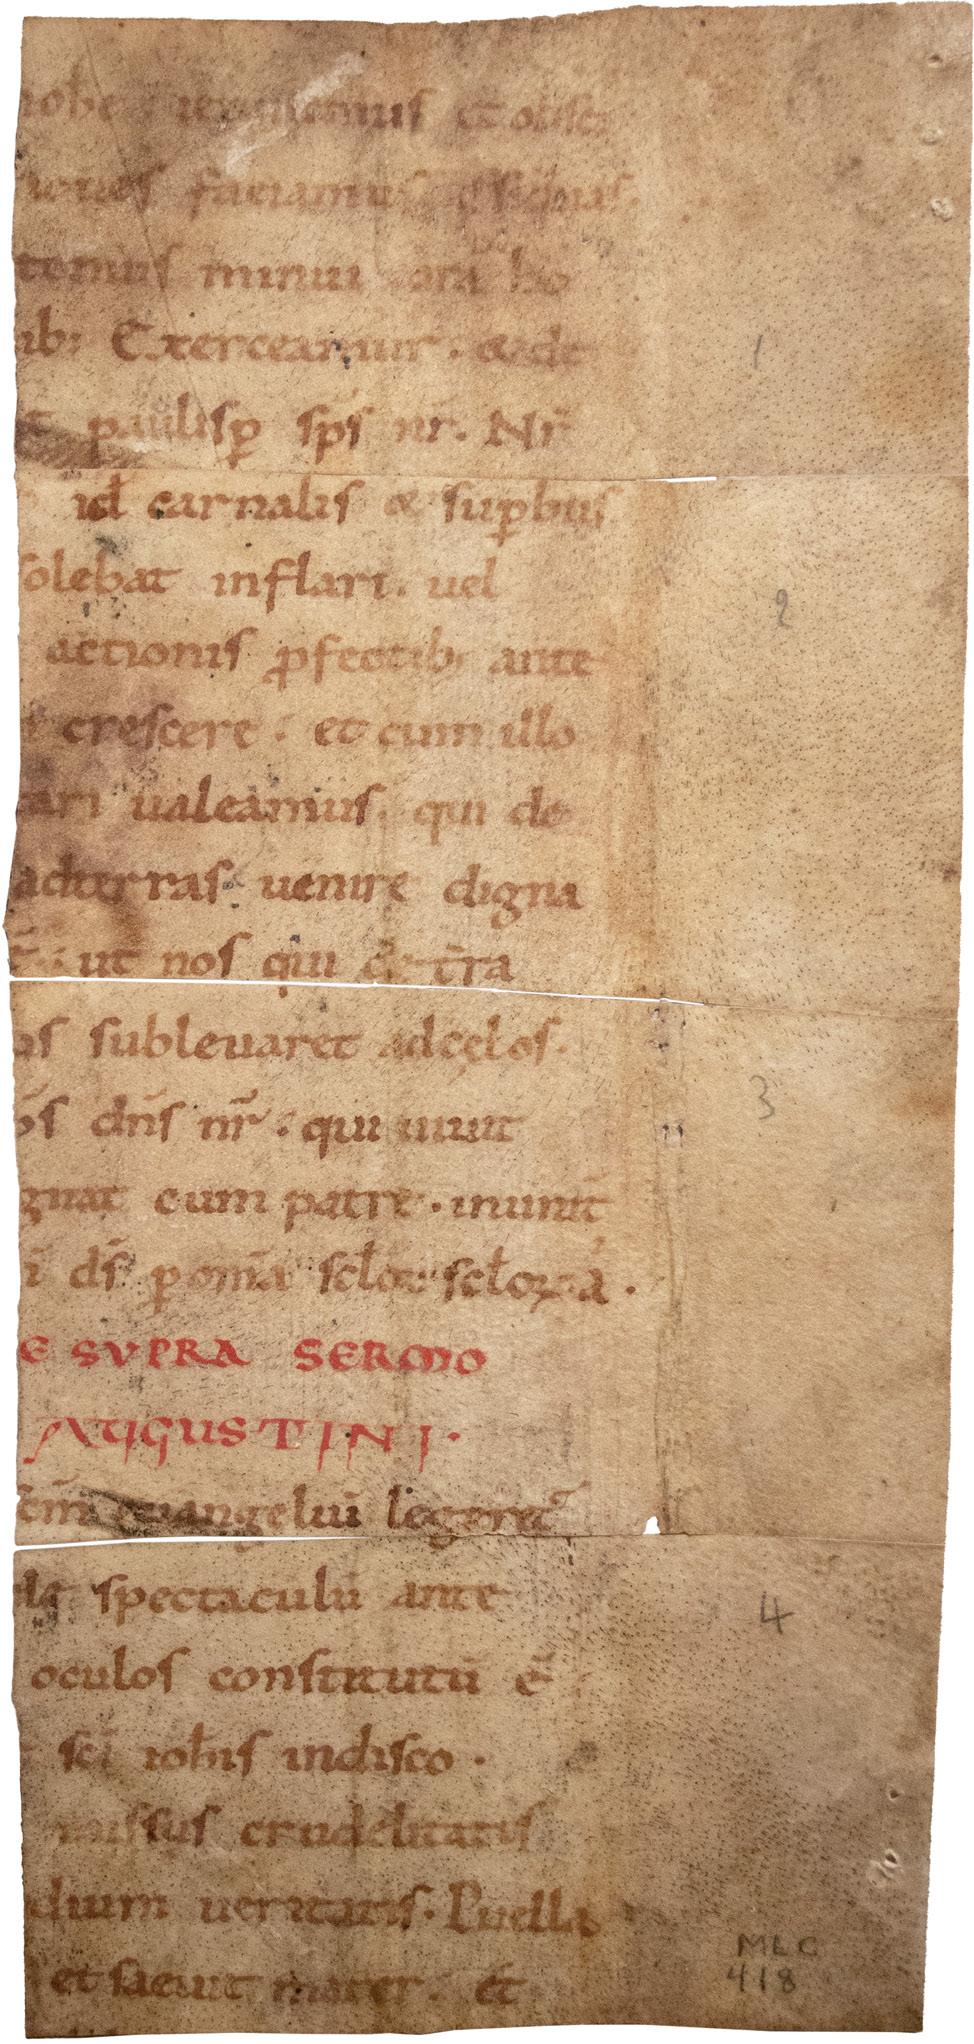 faciamus
minui
ib; Exerceamur. &de
paulisp sps nr. Nr
id carnalis & supbus
solebat inflari. uel
actionis pfectib; ante
crescere. et cum illo
ari ualeamus. qui de
adterras uenire digna
ut nos qui de tra
os subleuaret adcęlos.
os dns nr. qui uiuit
gnat cum patre. inunit
i ds p omia sclor sclor a.
E SVPRA SERMO
AUGUSTINI.
cm euangeliu legeret
spectaculu ante
oculos constitutu e
sci iohis indisco.
missus crudelitatis
dium ueritatis. Puella
et saeuit mater. et
1
2
3
4
MLC
418